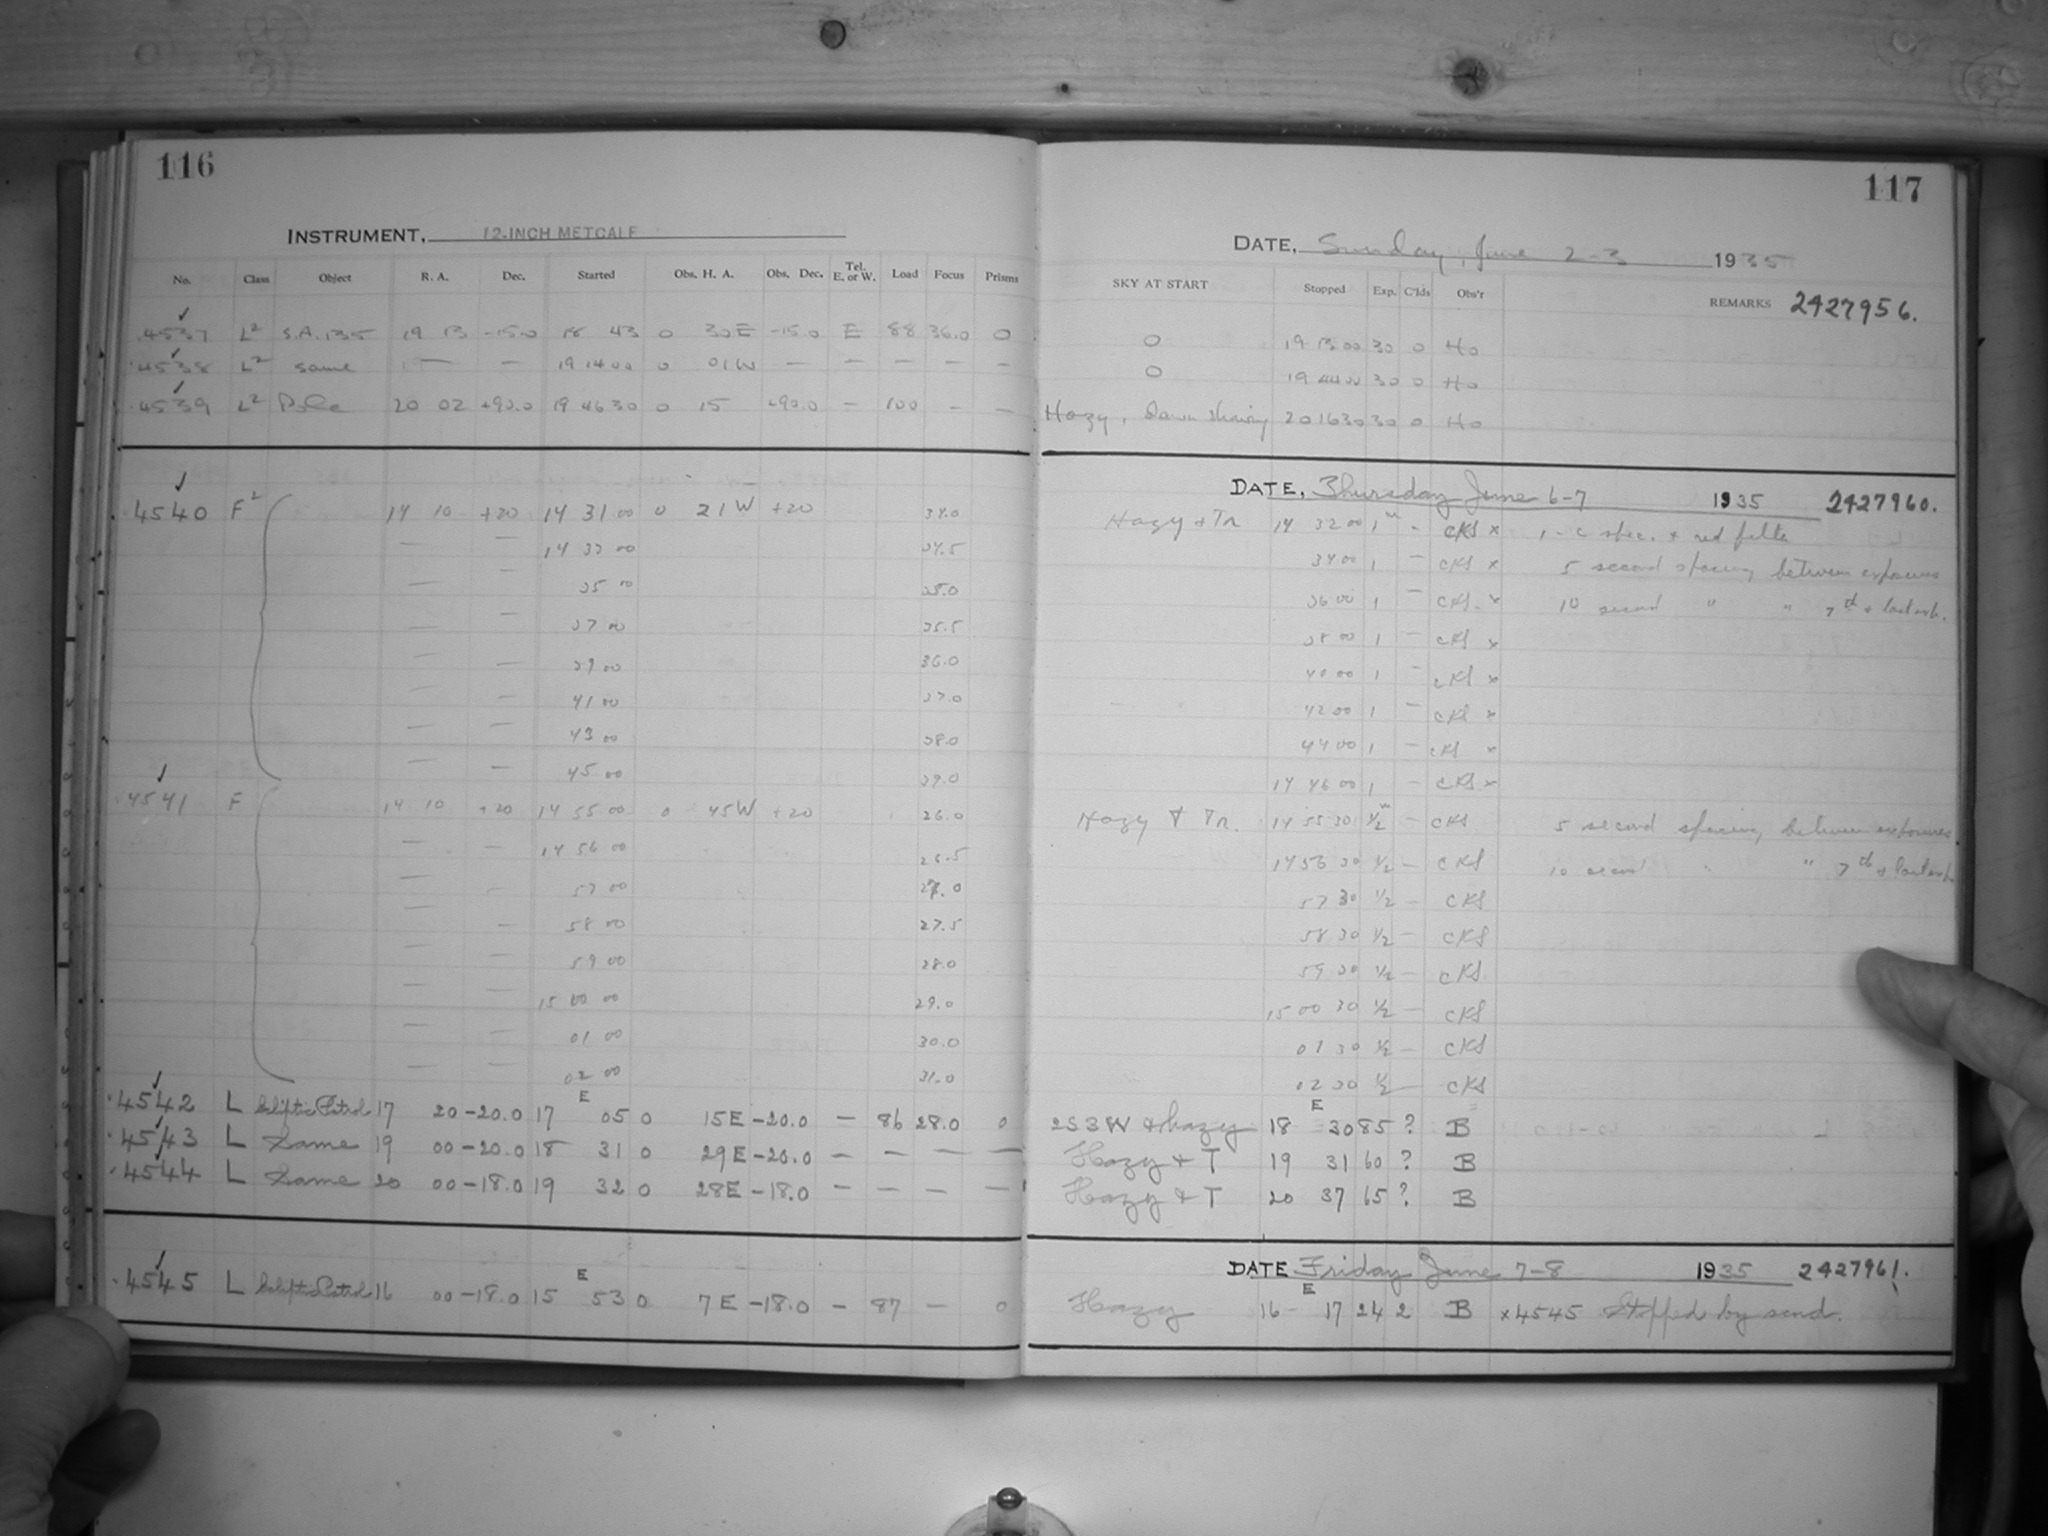 116
INSTRUMENT, 12-INCH METCALF
No. Class Object R. A. Dec. Started Obs. H. A. Obs. Dec. Tel. E. or W. Load Focus Prisms
4537 L² S.A.135 19 13 -15.0 18 43 0 30E -15.0 E 88 36.0 0
4538 L² same — — 19 14 00 0 01W — — — — —
4539 L² Pole 20 02 +90.0 19 46 30 0 15 +90.0 — 100 — —
4540 F² 14 10 +20 14 31 00 0 21W +20 34.0
— — 14 33 00 34.5
— — 35 00 35.0
— — 37 00 35.5
— — 39 00 36.0
— — 41 00 37.0
— — 43 00 38.0
— — 45 00 39.0
4541 F 14 10 +20 14 55 00 0 45W +20 26.0
— — 14 56 00 26.5
— — 57 00 27.0
— — 58 00 27.5
— — 59 00 28.0
— — 15 00 00 29.0
— — 01 00 30.0
— — 02 00 31.0
4542 L Ecliptic Patrol 17 20 -20.0 17 E 05 0 15E -20.0 — 86 28.0 0
4543 L Same 19 00 -20.0 18 31 0 29E -20.0 — — — —
4544 L Same 20 00 -18.0 19 32 0 28E -18.0 — — — —
4545 L Ecliptic Patrol 16 00 -18.0 15 E 53 0 7E -18.0 — 87 — 0
117
DATE, Sunday, June 2-3 1935
SKY AT START Stopped Exp. C'lds Obs'r REMARKS 2427956.
0 19 13 00 30 0 Ho
0 19 44 00 30 0 Ho
Hazy, Dawn showing 20 16 30 30 0 Ho
DATE, Thursday June 6-7 1935 2427960.
Hazy & Tr 14 32 00 1ᵐ - CKS x 1-C spec. & red filter
34 00 1 — CKS x 5 second spacing between exposures
36 00 1 — CKS x 10 second " " 7th & last exp.
38 00 1 — CKS x
40 00 1 — CKS x
42 00 1 — CKS x
44 00 1 — CKS x
14 46 00 1 — CKS x
Hazy & Tr. 14 55 30 1/2ᵐ — CKS 5 second spacing between exposures
14 56 30 1/2 — CKS 10 second " " 7th & last exp.
57 30 1/2 — CKS
58 30 1/2 — CKS
59 30 1/2 — CKS
15 00 30 1/2 — CKS
01 30 1/2 — CKS
02 30 1/2 — CKS
2S3W & hazy 18 E 30 85 ? B
Hazy & T 19 31 60 ? B
Hazy & T 20 37 65 ? B
DATE Friday June 7-8 1935 2427961.
Hazy 16 E 17 24 2 B x4545 Stopped by